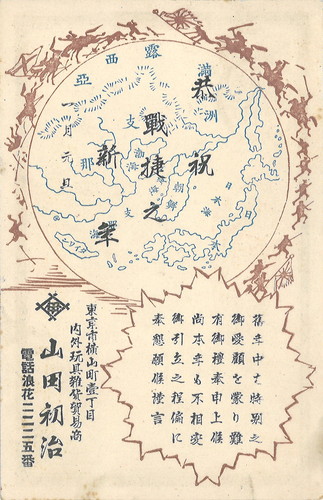 恭祝
戰捷之
新年
一月元旦
露西亞
滿洲
支那
朝鮮
日本海
舊年中は特別之
御愛顧を蒙り難
有御禮奉申上候
尚本年も不相変
御引立之程偏に
奉懇願候謹言
東京市横山町壹丁目
内外玩具雜貨貿易商
山田初治
電話浪花二二二五番